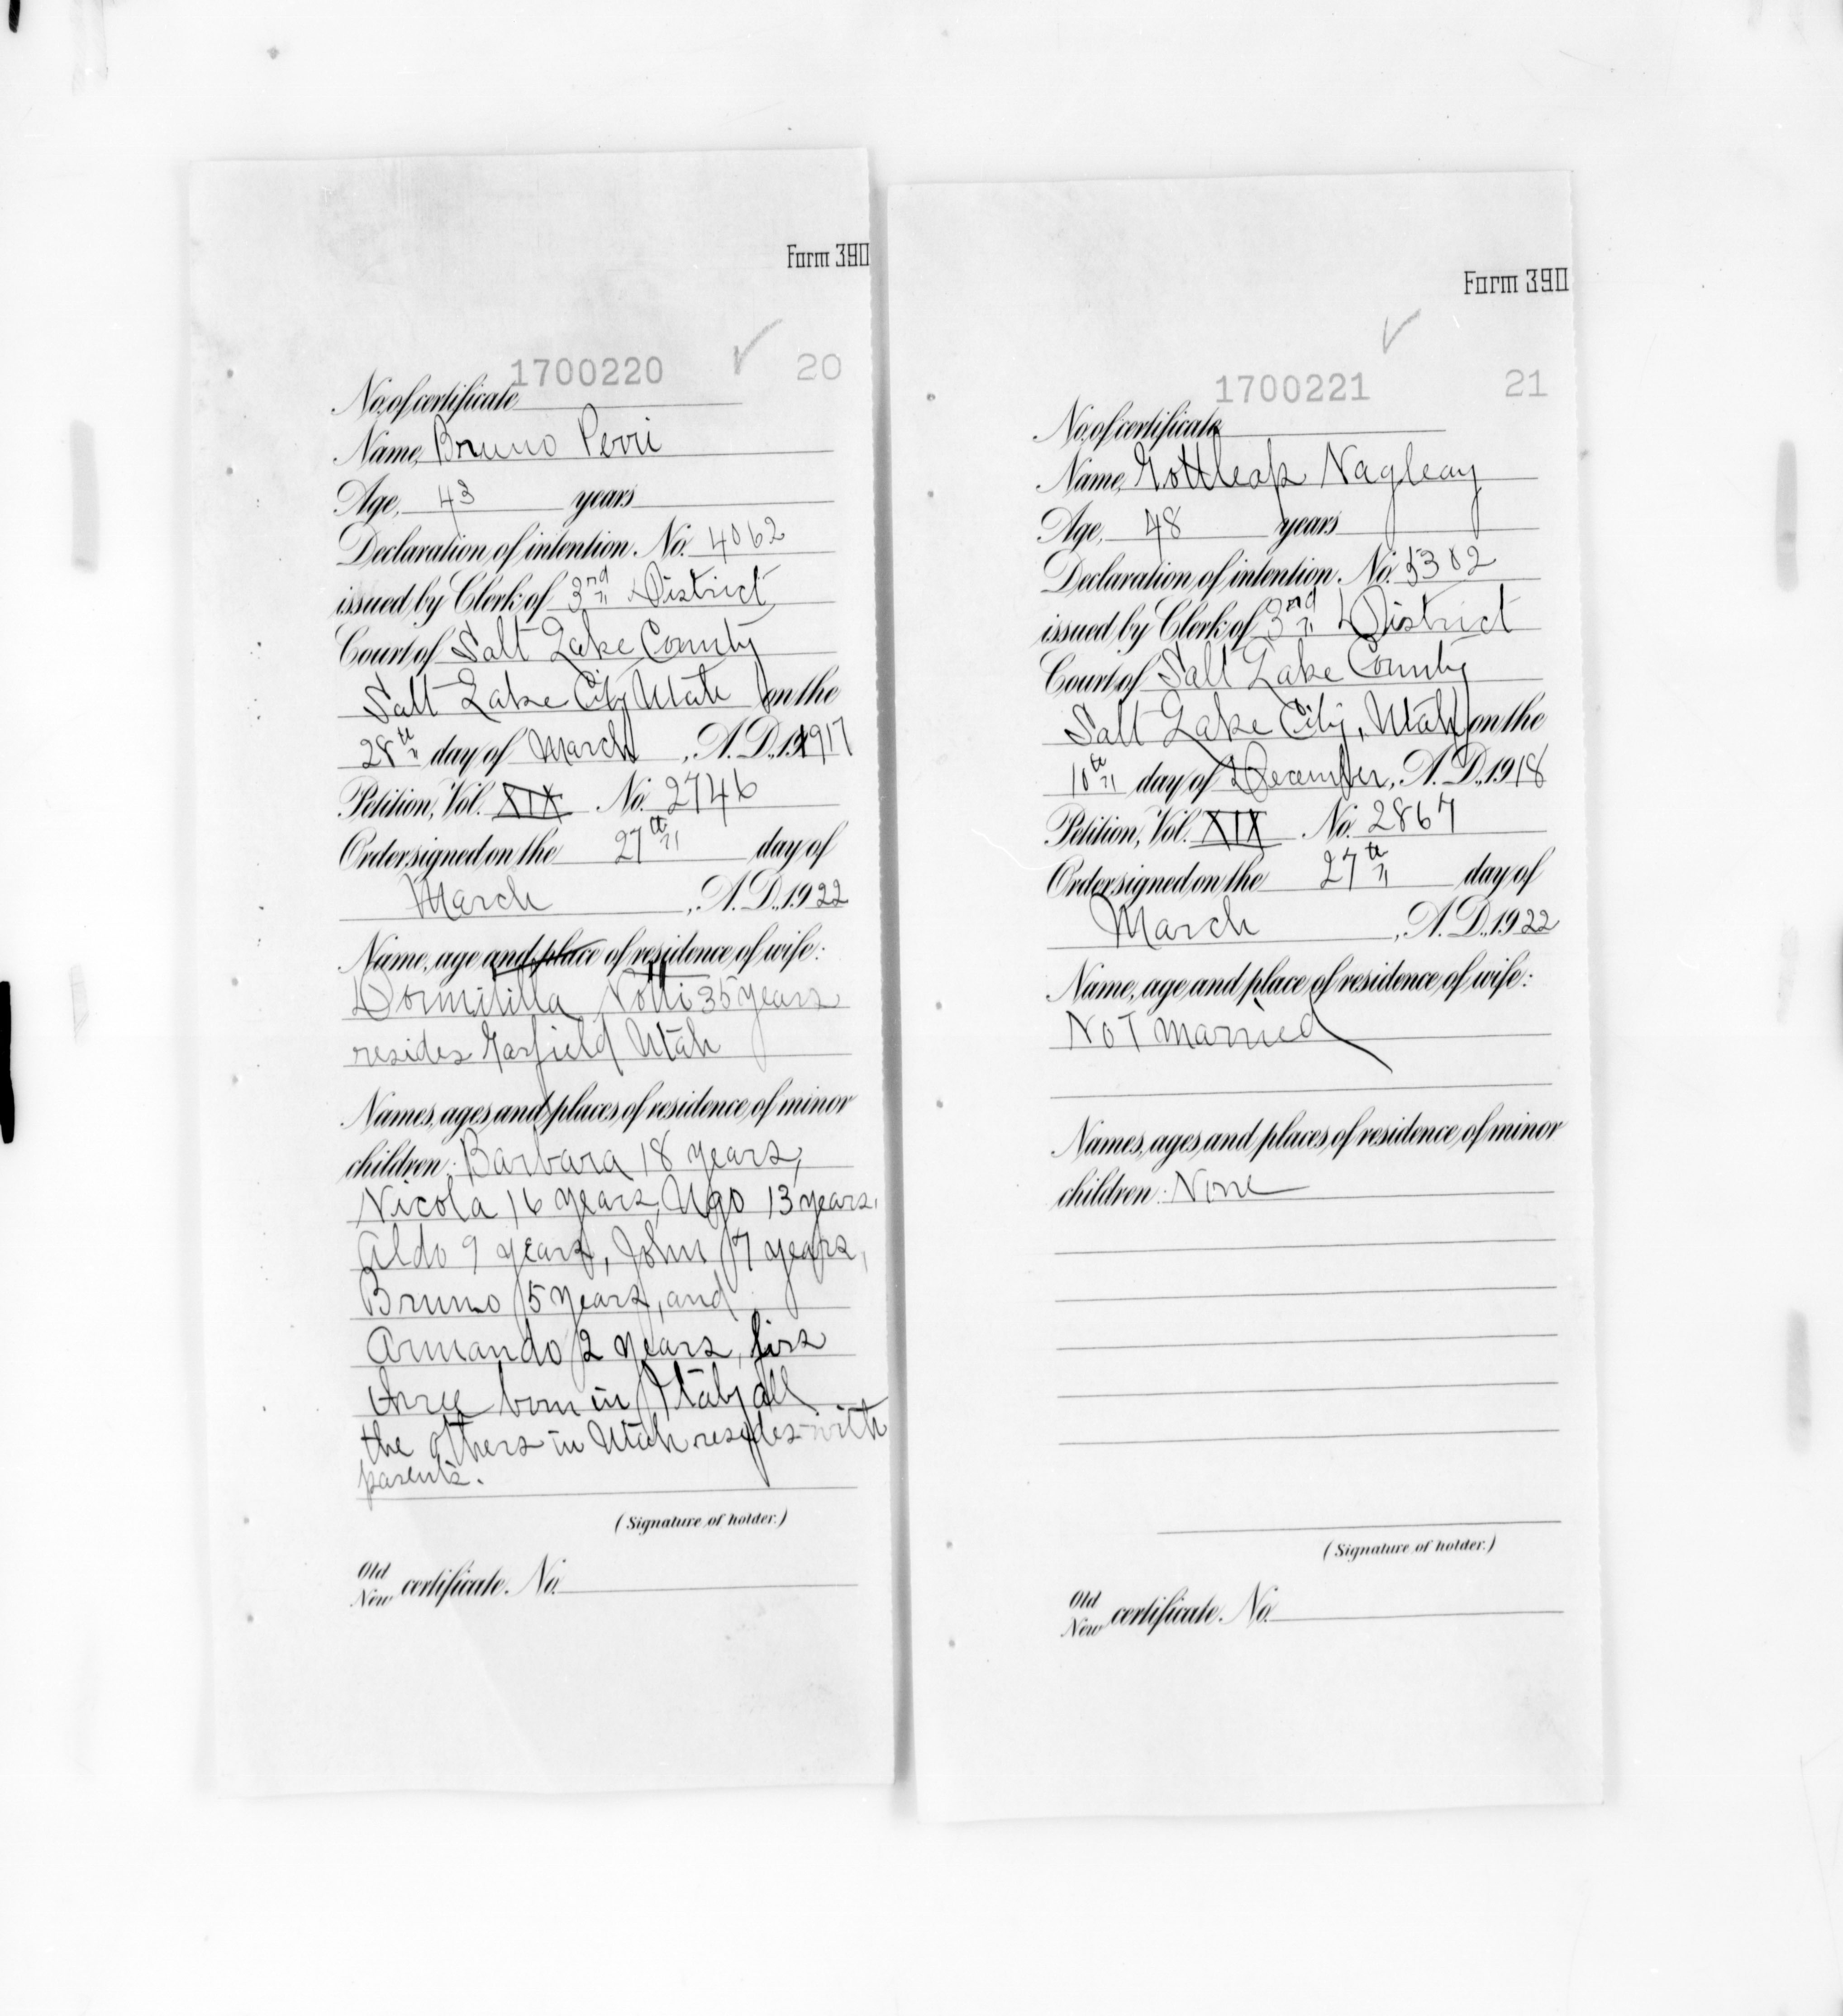 Form 390
1700220 20
No. of certificate
Name, Bruno Perri
Age, 43 years
Declaration of intention. No. 4062
issued by Clerk of 3rd District
Court of Salt Lake County
Salt Lake City Utah on the
28th day of March, A.D., 1917
Petition, Vol. XIX No. 2746
Order signed on the 27th day of
March, A.D., 1922
Name, age and place of residence of wife:
35 years
resides Garfield Utah
Names, ages and places of residence of minor
children: Barbara 18 years,
Nicola 16 years, Ugo 13 years.
Aldo 9 years, John 7 years,
Bruno 5 years, and
Armando 2 years, firs
three born in Italy all
the others in Utah resides with
parents.
(Signature of holder.)
Old
New certificate. No.
Form 390
1700221 21
No. of certificate
Name, Nagleay
Age, 48 years
Declaration of intention. No. 5302
issued by Clerk of 3rd District
Court of Salt Lake County
Salt Lake City, Utah on the
10th day of December, A.D., 1918
Petition, Vol. XIX No. 2867
Order signed on the 27th day of
March, A.D., 1922
Name, age and place of residence of wife:
NoT married
Names, ages and places of residence of minor
children: None
(Signature of holder.)
Old
New certificate. No.